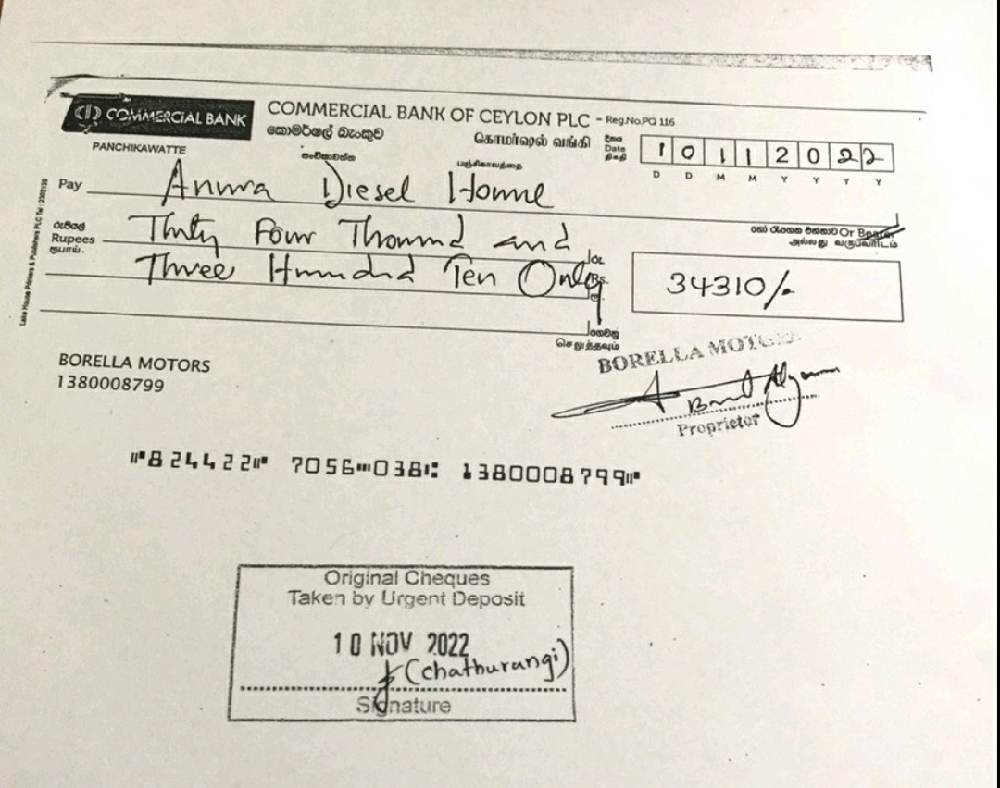 COMMERCIAL BANK
COMMERCIAL BANK OF CEYLON PLC - Reg.No.PQ 116
කොමර්ෂල් බැංකුව கொமர்ஷல் வங்கி
PANCHIKAWATTE පංචිකාවත්ත பஞ்சிகாவத்தை
දිනය
Date 10112022
திகதி
D D M M Y Y Y Y
Pay Anura Diesel Home
හෝ රැගෙන එන්නාට Or Bearer
அல்லது வருபவரிடம்
රුපියල්
Rupees Thirty Four Thousand and
ரூபாய்
Three Hundred Ten Only
රු.
Rs.
ரூ.
34310/-
ගෙවනු
செலுத்தவும்
Lake House Printers & Publishers PLC
BORELLA MOTORS
1380008799
BORELLA MOTORS
Proprietor
⑈824422⑈ 7056⑉038⑆ 1380008799⑈
Original Cheques
Taken by Urgent Deposit
10 NOV 2022
(chathurangi)
Signature